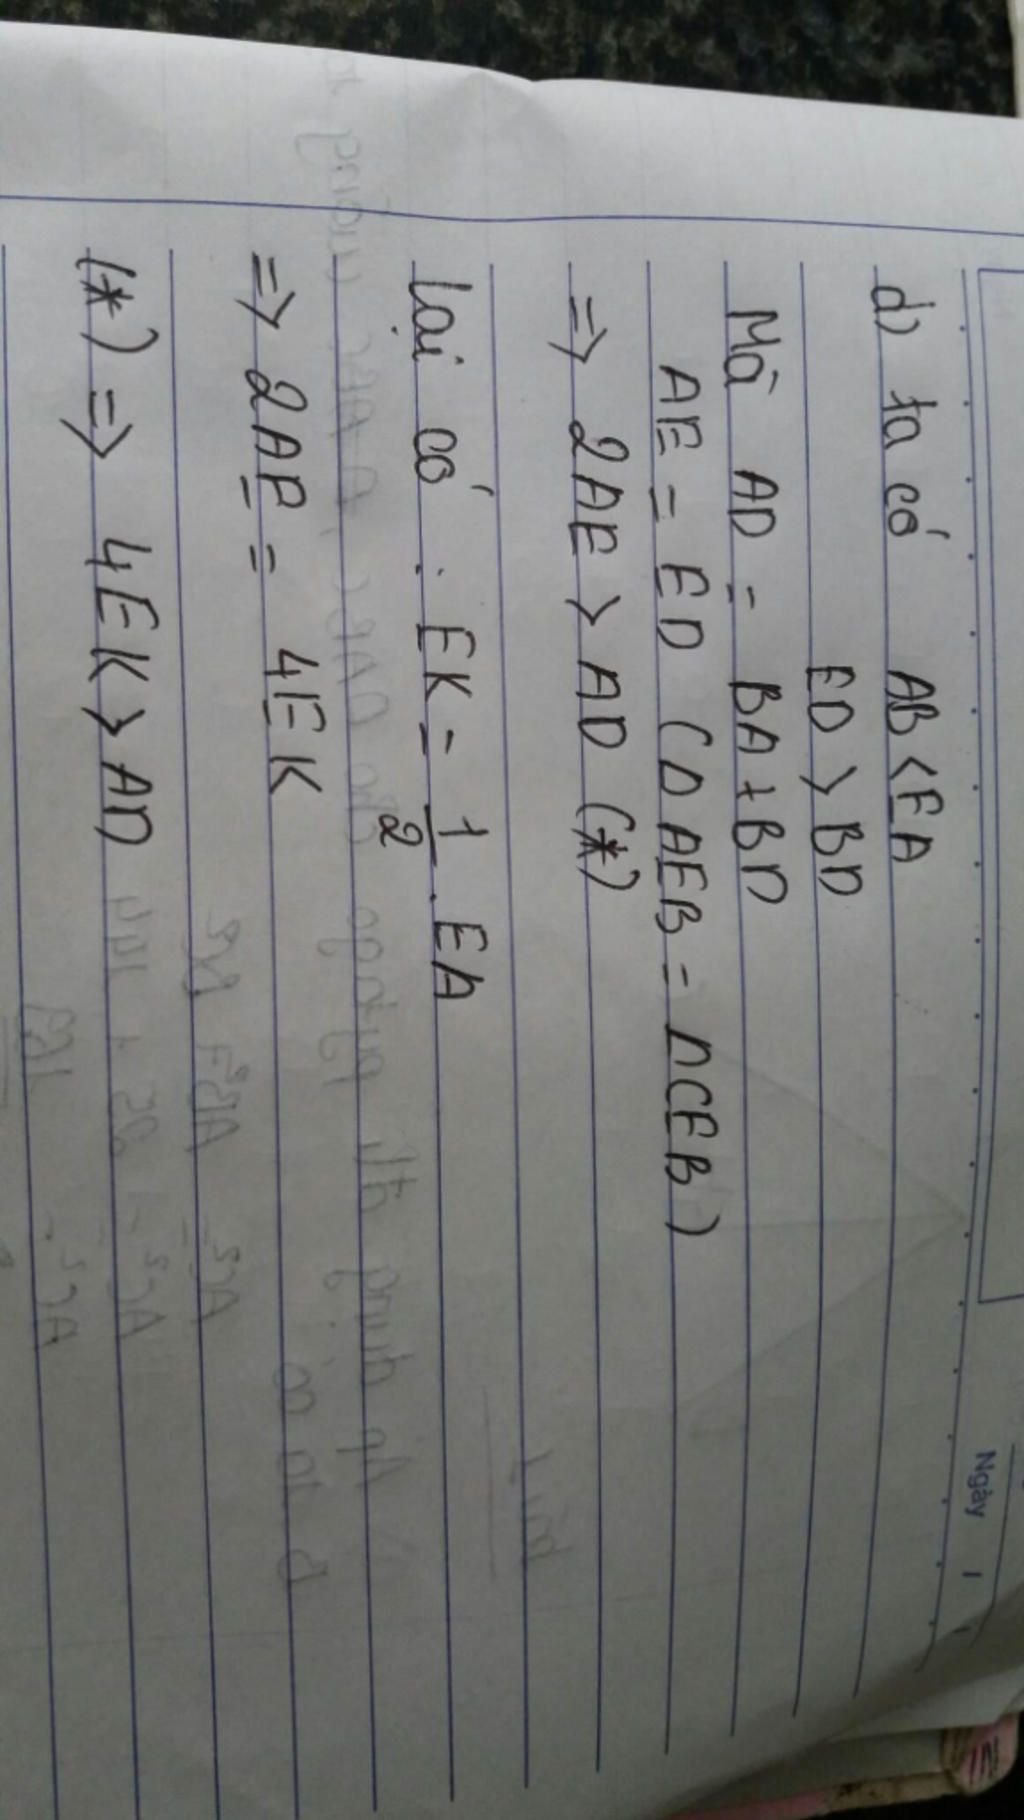 Ngày
d) ta có AB < EA
ED > BD
Mà AD = BA + BD
AE = ED (Δ AEB = Δ CEB)
=> 2AE > AD (*)
Lại có : EK = 1/2 . EA
=> 2AE = 4EK
(*) => 4EK > AD